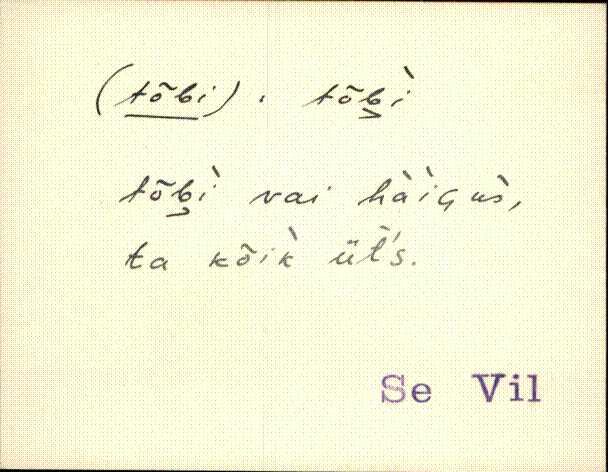 (tõbi). tõb̬ì
tõb̬ì vai hàìGùs̀,
ta kõik̀ üt̀'s.
Se Vil